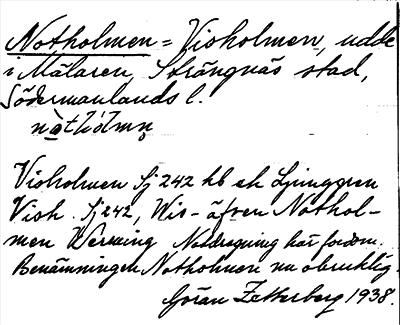 Notholmen = Visholmen, udde
i Mälaren, Strängnäs stad,
Södermanlands l.
Visholmen Sj 242 hb ek Ljunggren
Vish. Sj 242, Wis- äfven Nothol-
men Werming Notdragning här fordom.
Benämningen Notholmen nu obruklig.
Göran Zetterberg 1938.